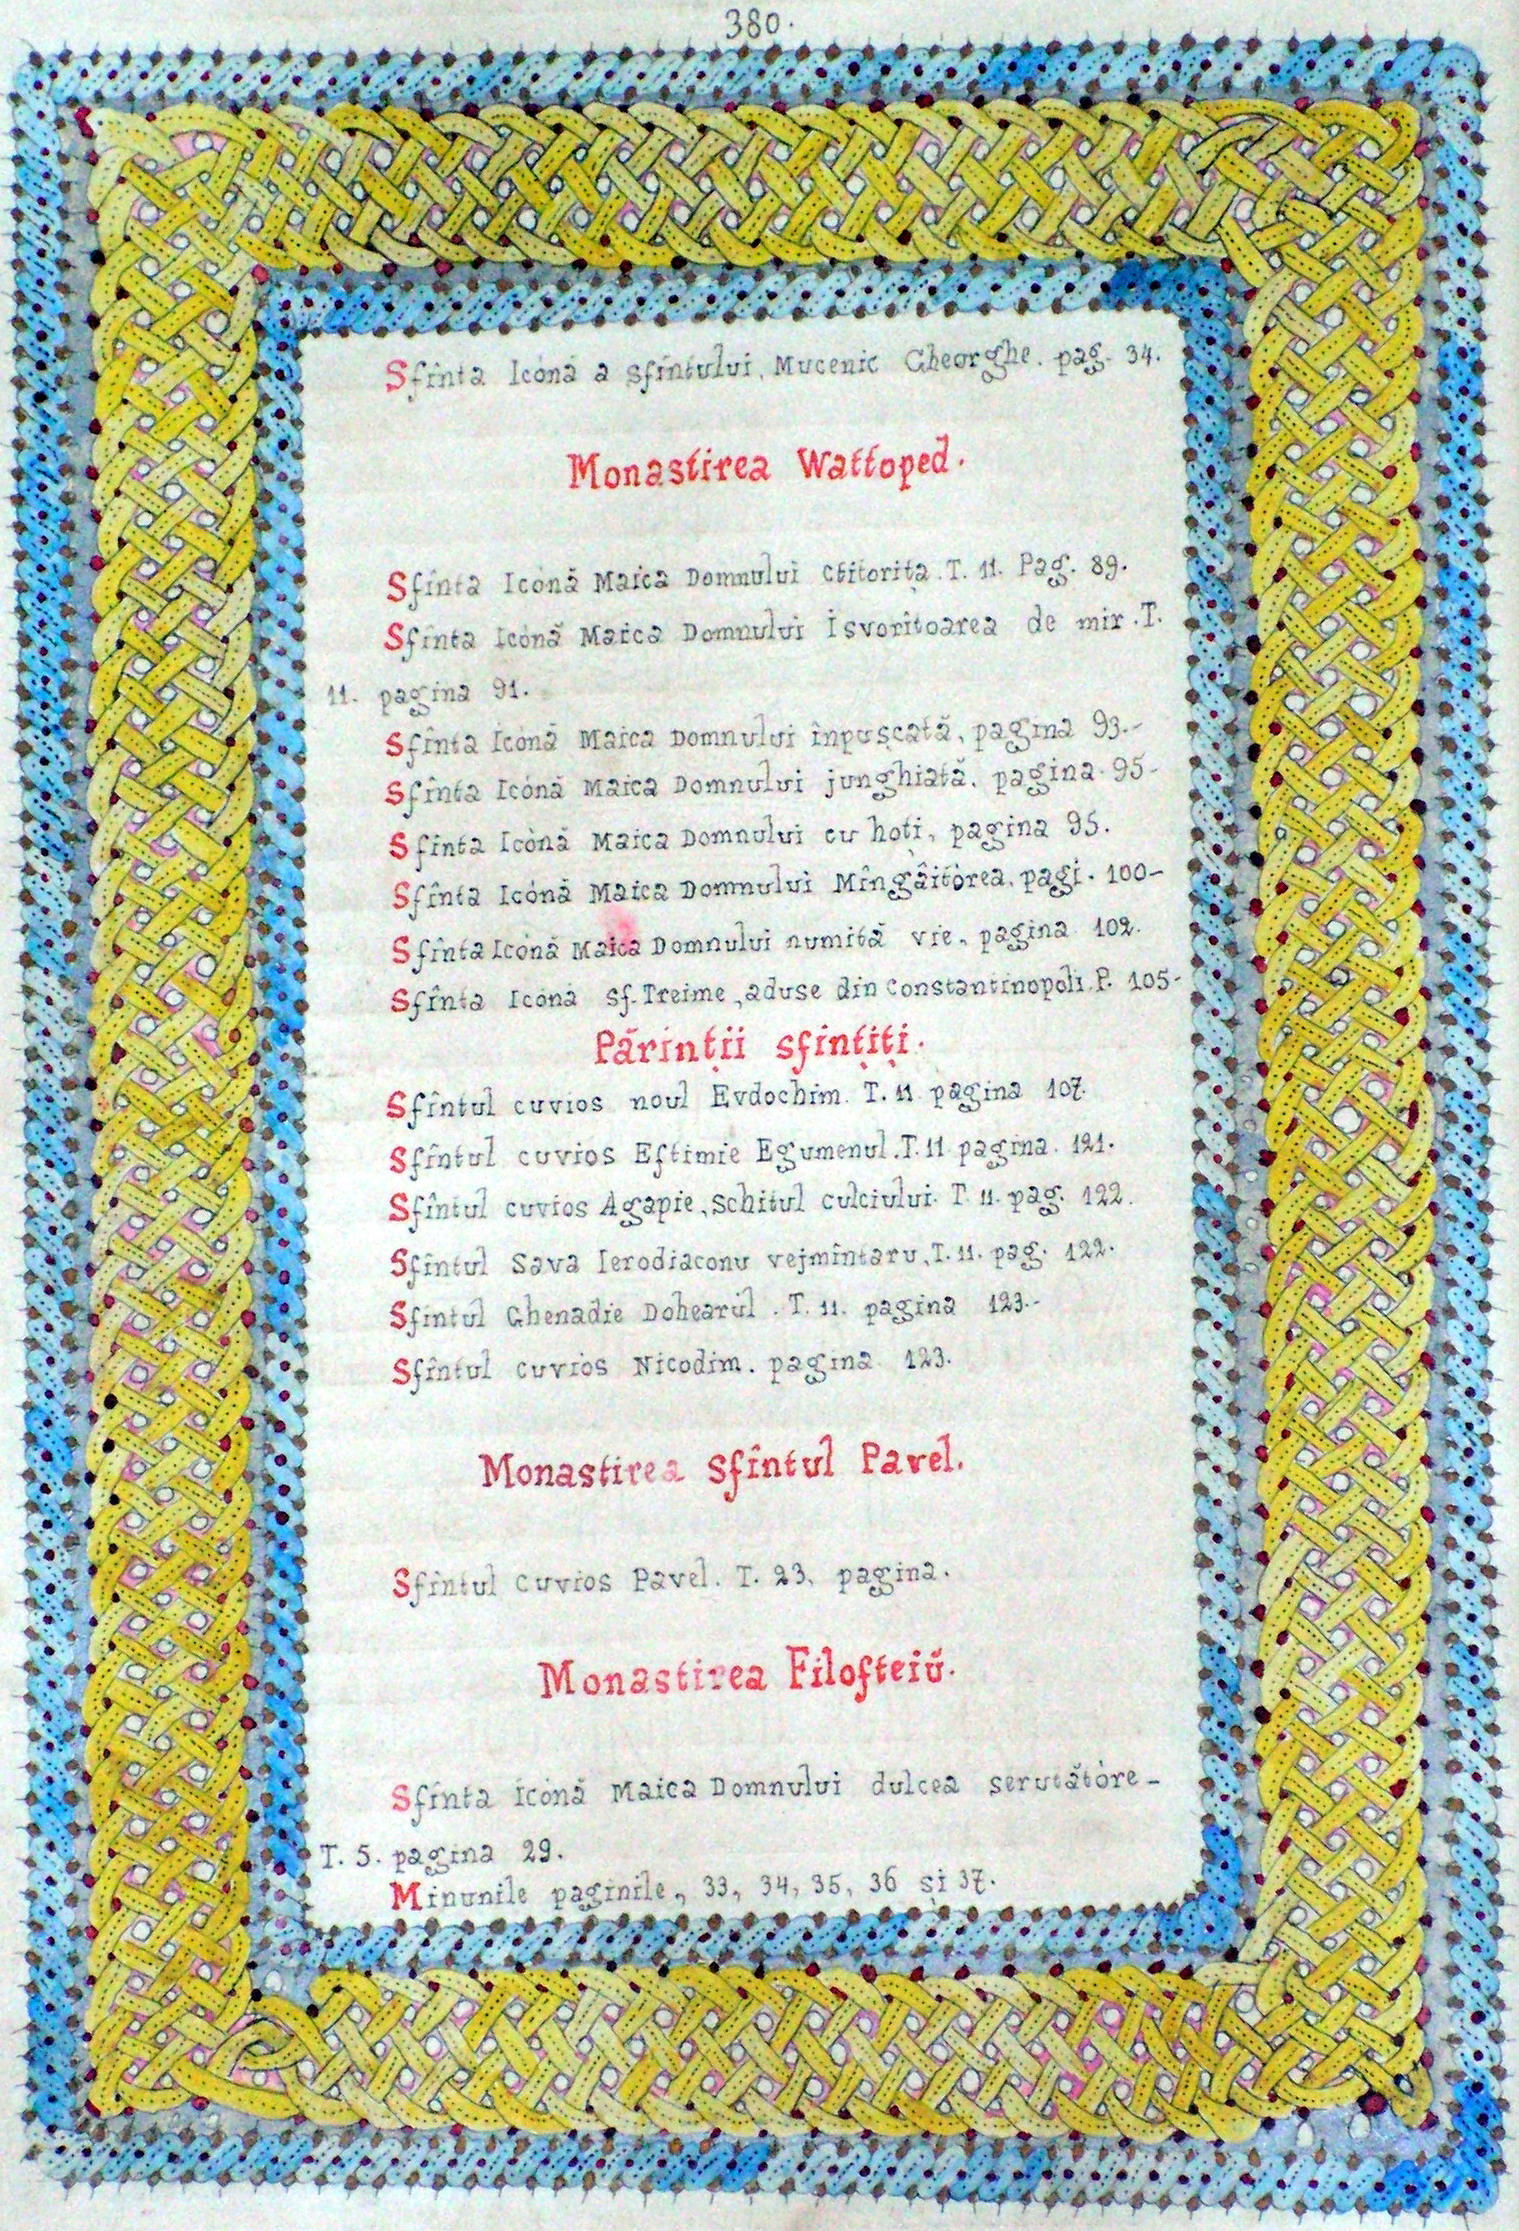 380.
Sfînta Icónă a sfîntului, Mucenic Gheorghe. pag. 34.
Monastirea Wattoped.
Sfînta Icónă Maica Domnului Ctitorița. T. 11. Pag. 89.
Sfînta Icónă Maica Domnului Isvorîtoarea de mir. T.
11. pagina 91.
Sfînta Icónă Maica Domnului înpușcată, pagina 93.-
Sfînta Icónă Maica Domnului junghiată, pagina 95-
Sfînta Icónă Maica Domnului cu hoți, pagina 95.
Sfînta Icónă Maica Domnului Mîngâitórea, pagi. 100-
Sfînta Icónă Maica Domnului numită vie, pagina 102.
Sfînta Icónă Sf. Treime, aduse din Constantinopoli. P. 105-
Părinții sfințiți.
Sfîntul cuvios noul Evdochim. T. 11 pagina 107.
Sfîntul cuvios Eftimie Egumenul. T. 11 pagina. 121.
Sfîntul cuvios Agapie, Schitul culciului. T. 11. pag. 122.
Sfîntul Sava Ierodiaconu vejmîntaru, T. 11. pag. 122.
Sfîntul Ghenadie Dohearul. T. 11. pagina 123.-
Sfîntul cuvios Nicodim. pagina 123.
Monastirea Sfîntul Pavel.
Sfîntul cuvios Pavel. T. 23, pagina.
Monastirea Filofteiŭ.
Sfînta Icónă Maica Domnului dulcea serutătóre-
T. 5. pagina 29.
Minunile paginile, 33, 34, 35, 36 și 37.